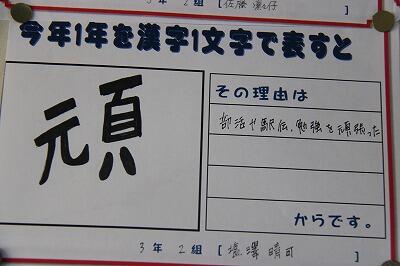 3年 2組 [佐藤
今年1年を漢字1文字で表すと
頑
その理由は
部活や駅伝、勉強を頑張った
からです。
3年 2組 [塩澤 晴可 ]